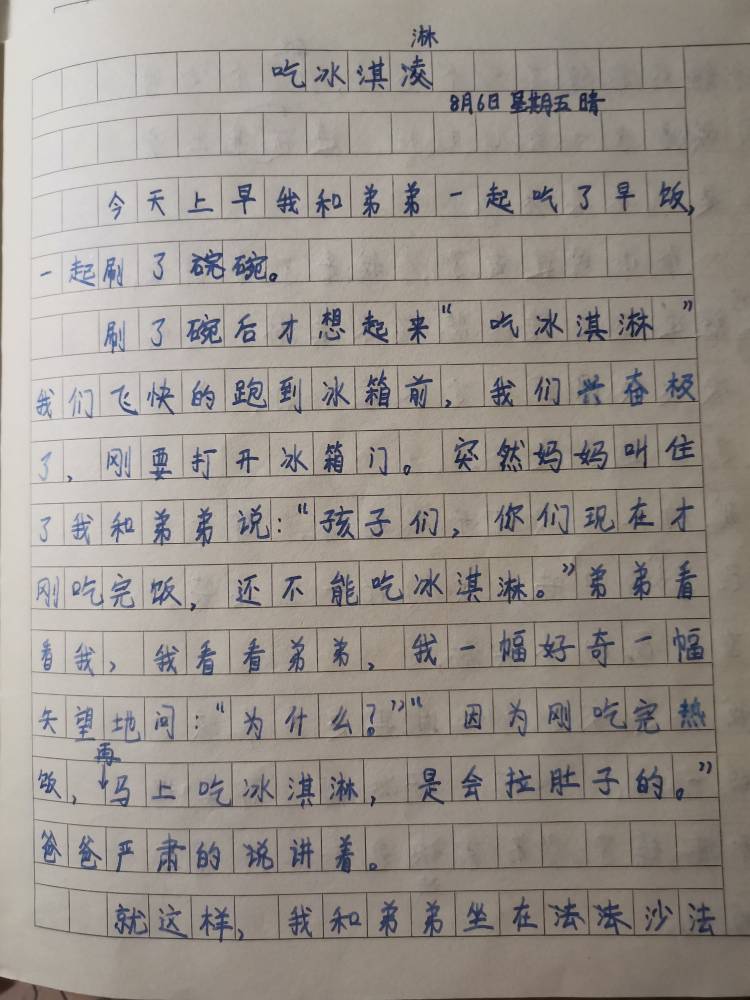 淋
吃冰淇凌
8月6日 星期五 晴
今天上早我和弟弟一起吃了早饭,
一起刷了碗碗。
刷了碗后才想起来“吃冰淇淋”
我们飞快的跑到冰箱前,我们兴奋极
了,刚要打开冰箱门。突然妈妈叫住
了我和弟弟说:“孩子们,你们现在才
刚吃完饭,还不能吃冰淇淋。”弟弟看
看我,我看看弟弟,我一幅好奇一幅
失望地问:“为什么?”“因为刚吃完热
再
饭,马上吃冰淇淋,是会拉肚子的。”
爸爸严肃的说讲着。
就这样,我和弟弟坐在法法沙法